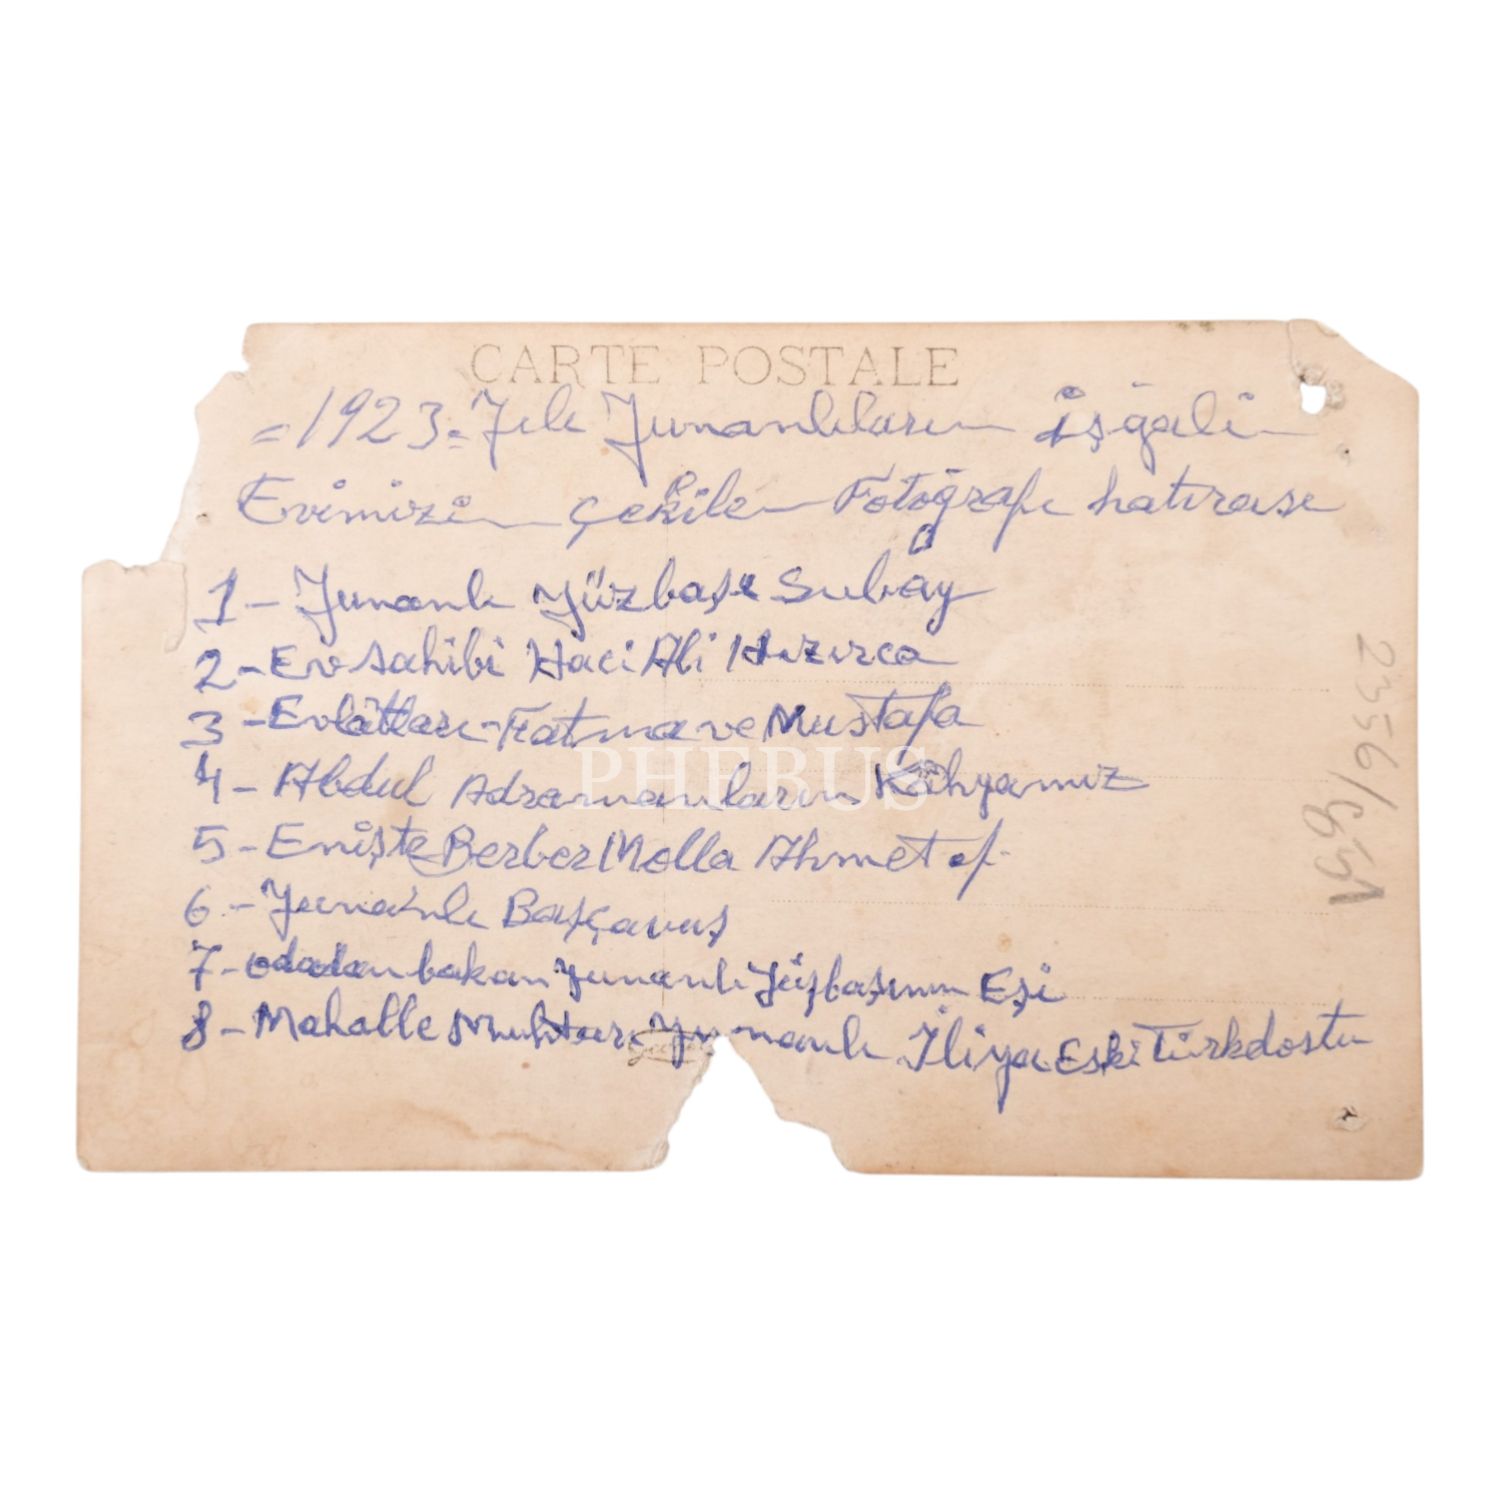 CARTE POSTALE
=1923= Yılı Yunanlıların işgali
Evimizin çekilen Fotoğrafı hatırası
1- Yunanlı Yüzbaşı Subay
2- Ev sahibi Haci Ali Hızırca
3- Evlâtları- Fatma ve Mustafa
4- Abdul Adramanların Kâhyamız
5- Enişte Berber Molla Ahmet ef.
6- Yunanlı Başçavuş
7- odadan bakan Yunanlı Yüzbaşının Eşi
8- Mahalle Muhtarı Yunanlı İliya Eski Türkdostu
PHEBUS